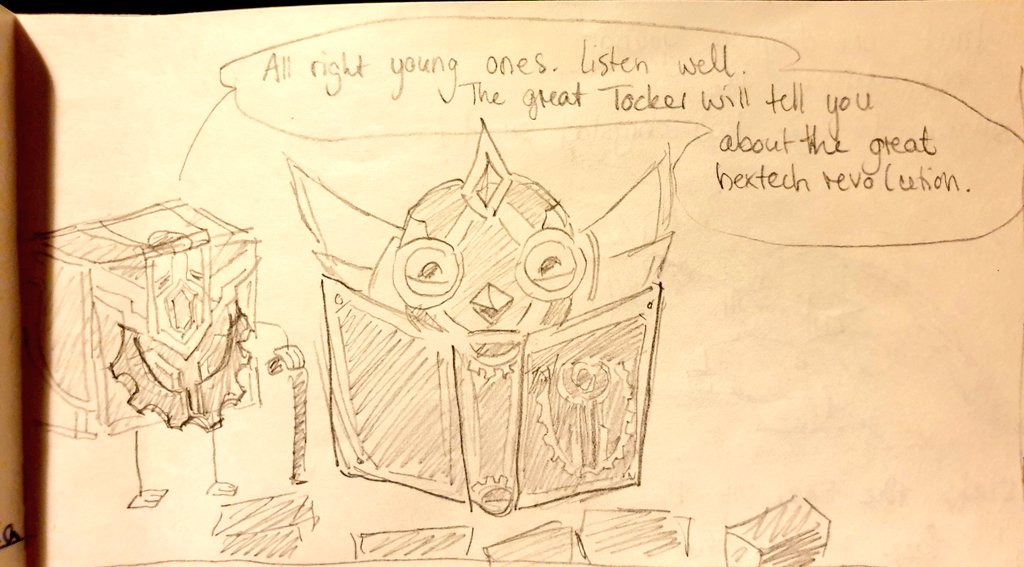 All right young ones. Listen well.
The great Tocker will tell you
about the great
hextech revolution.